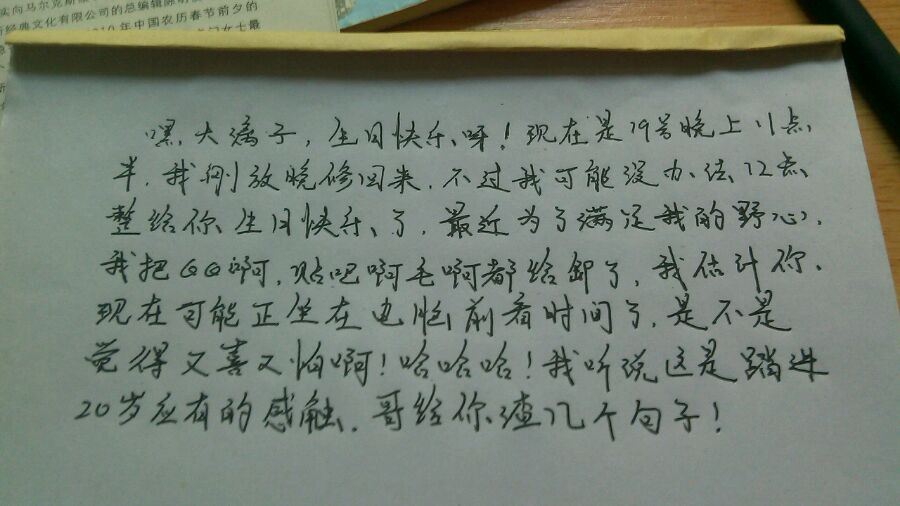 实向马尔克斯
经典文化有限公司的总编辑陈明
2010年中国农历春节前夕的
女士最
嘿,大满子,生日快乐呀!现在是19号晚上11点
半,我刚放晚修回来,不过我可能没办法12点
整给你生日快乐了,最近为了满足我的野心,
我把QQ啊,贴吧啊毛啊都给卸了,我估计你
现在可能正坐在电脑前看时间了,是不是
觉得又喜又怕啊!哈哈哈!我听说这是踏进
20岁应有的感触,哥给你渣几个句子!